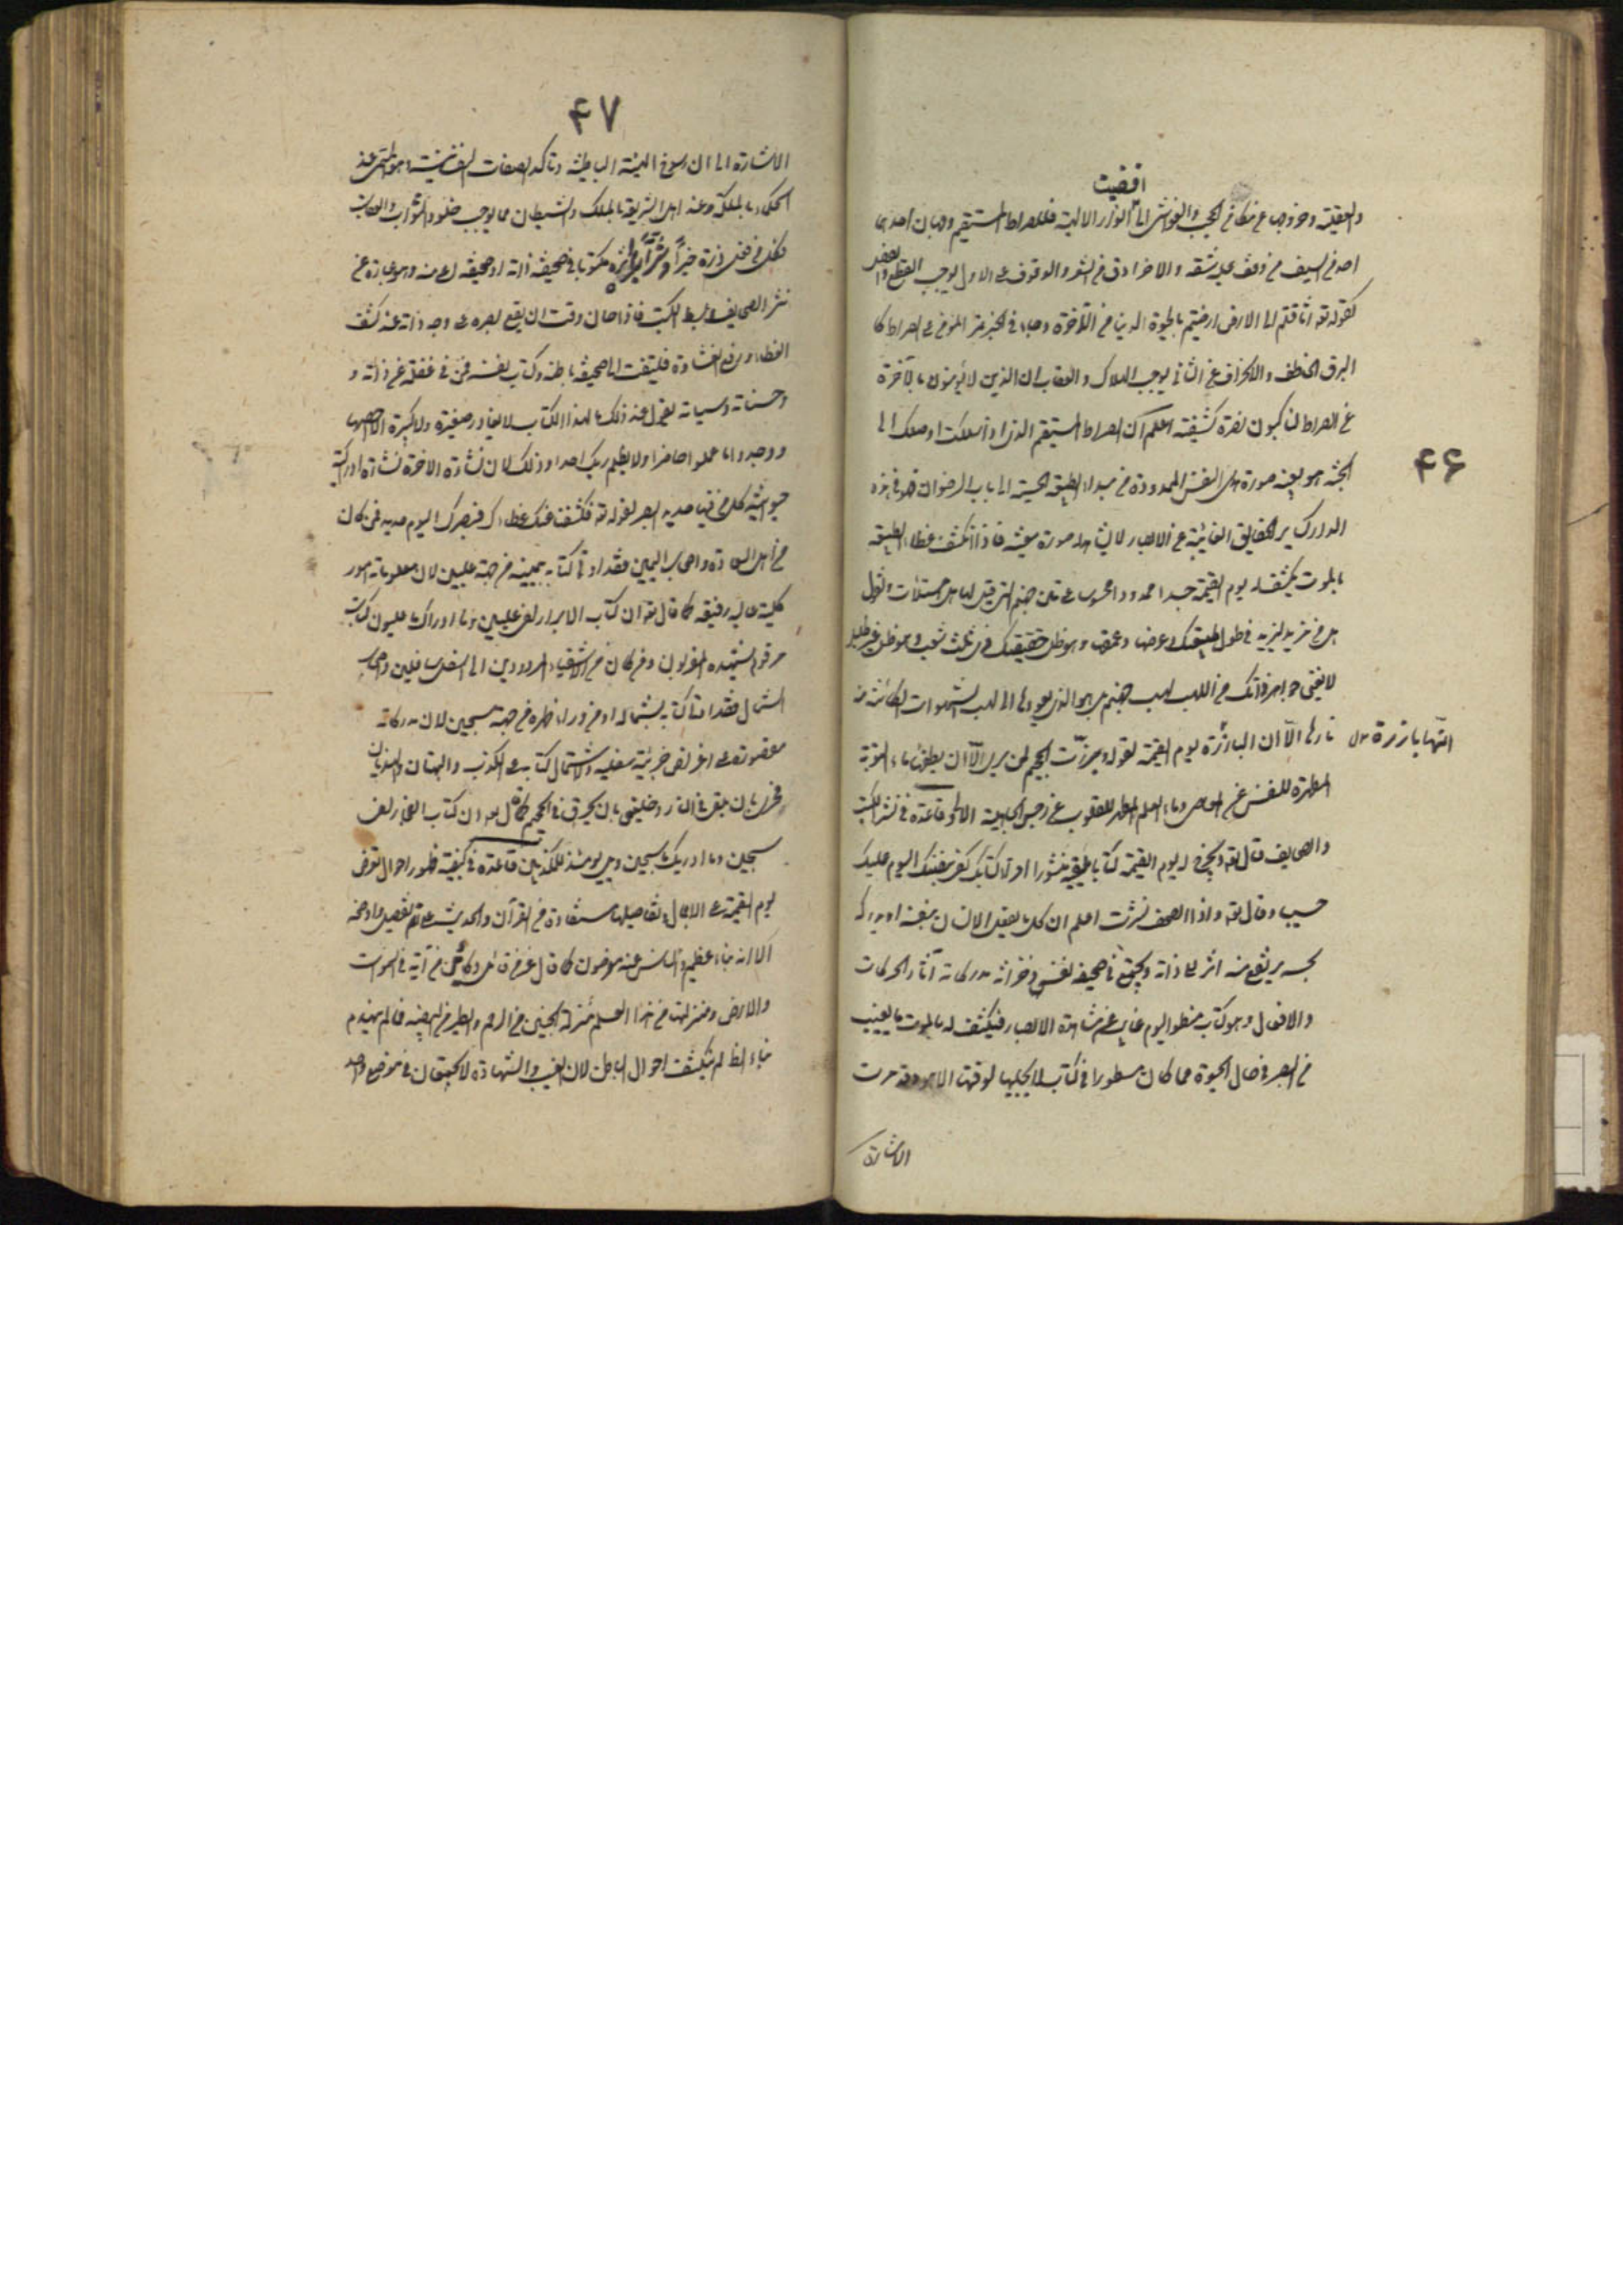 ۴۶
افضيت
والعقلية وخروجها عن مكامن الحجب والغواشى الى الانوار الالهية فللصراط المستقيم وجهان احدهما
احد من السيف من وقف عليه شقه والاخر ادق من الشعر والوقوف على الاول يوجب القطع والفصل
كقوله تعه اثاقلتم الى الارض ارضيتم بالحيوة الدنيا من الآخرة وجاء فى الخبر يمر المؤمن على الصراط كا
البرق الخاطف والانحراف عن الثانى يوجب الهلاك والعقاب ان الذين لا يؤمنون بالآخرة
عن الصراط لناكبون نصرة كشفية اعلم ان الصراط المستقيم الذى اذا سلكت اوصلك الى
الجنة هو بعينه صورة هدى النفس الممدودة من مبداء الطبيعة الحسية الى باب الرضوان فهو فى هذه
الدار كساير الحقايق الغائبة عن الابصار لا يشاهد صورة معينة فاذا انكشف غطاء الطبيعة
بالموت يكشف له يوم القيمة جسرا ممدودا محسوسا على متن جهنم التى قيل لها هل امتلات وتقول
هل من مزيد ليزيد فى طول طبيعتك وعرضها وعمقها وهو ظل حقيقتك فى ثلث شعب وهو ظل غير ظليل
لا يغنى جواهر ذاتك من اللهب لهب جهنم بل هو الذى يعود بها الى لهب الشهوات الكائنة من
نارها الآ ان البارزة يوم القيمة لقوله وبرزت الجحيم لمن يرى الآ ان يطفئها ماء التوبة
انتها بارزة مں
المطهرة للنفس عن المعاصى وماء العلم المطهر للقلوب عن رجس الجاهلية الاولى قاعدة فى نشر الكتب
والصحايف قال تعه ويخرج له يوم القيمة كتابا يلقيه منشورا اقراء كتابك كفى بنفسك اليوم عليك
حسيبا وقال تعه واذا الصحف نشرت اعلم ان كل ما يفعل الانسان بنفسه او يدركه
بحسه يرتفع منه اثر الى ذاته ويجتمع فى صحيفة نفس وخزانة مدركاته آثار الحركات
والافعال وهو كتاب منطو اليوم غايب عن مشاهدة الابصار فيكشف له بالموت ما يغيب
من البصر فى حال الحيوة مما كان مسطورا فى كتاب لا يجليها لوقتها الا هو وقد مرت
الاشارة
۴۷
الاشارة الى ان رسوخ الهيئة الباطنية وتأكد الصفات النفسانية هو المسمى عند
الحكماء بالملكة وعند اهل الشريعة بالملك والشيطان مما يوجب خلود الثواب والعقاب
فكل من فعل ذرة خيرا او شرا يره مكتوبا فى صحيفة ذاته او صحيفة اعلى منه وهو عبارة عن
نشر الصحايف وبسط الكتب فاذا حان وقت ان يقع بصره على وجه ذاته عند كشف
الغطاء ورفع الغشاوة فليتفت الى صحيفة باطنه وكتاب نفسه فمن فى غفلة عن ذاته و
وحسناته وسيئاته يقول عند ذلك ما لهذا الكتاب لا يغادر صغيرة ولا كبيرة الا احصيها
ووجدوا ما عملوا حاضرا ولا يظلم ربك احدا وذلك لان نشاءة الاخرة نشاءة ادراكية
حيوانية كل من فيها حديد البصر لقوله تعه فكشفنا عنك غطاءك فبصرك اليوم حديد فمن كان
من اهل السعادة واصحاب اليمين فقد اوتى كتابه بيمينه من جهة عليين لان معلوماته امور
كلية عالية رفيعة كما قال تعه ان كتاب الابرار لفى عليين وما ادراك ما عليون كتاب
مرقوم يشهده المقربون ومن كان من الاشقياء المردودين الى اسفل سافلين واصحاب
الشمال فقد اوتى كتابه بشماله او من وراء ظهره من جهة سجين لان مدركاته
مقصورة على اغراض جزئية سفلية ولاشتمال كتابه على الكذب والبهتان والهذيان
فحرى بان يلقى فى النار وخليق بان يحرق فى الجحيم كما قال تعه ان كتاب الفجار لفى
سجين وما ادريك ما سجين ويل يومئذ للمكذبين قاعدة فى كيفية ظهور احوال تعرض
يوم القيمة على الاجمال وتفاصيلها مستفادة من القرآن والحديث على اتم تفصيل واوضحه
الا انه نباء عظيم والناس عنه معرضون كما قال عز من قائل وكأين من آية فى السموات
والارض ومنزلتها من هذا العالم منزلة الجنين من الرحم والطير من البيضة فما لم ينهدم
بناء الظاهر لم ينكشف احوال الباطن لان الغيب والشهادة لا يجتمعان فى موضع واحد